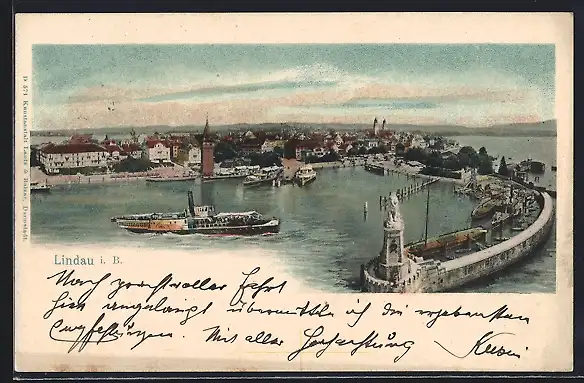 D 571 Kunstanstalt Lautz & Balzar, Darmstadt.
Lindau i. B.
Nach prachtvoller Fahrt
hier angelangt übermittele ich die ergebensten
Empfehlungen. Mit aller Hochachtung